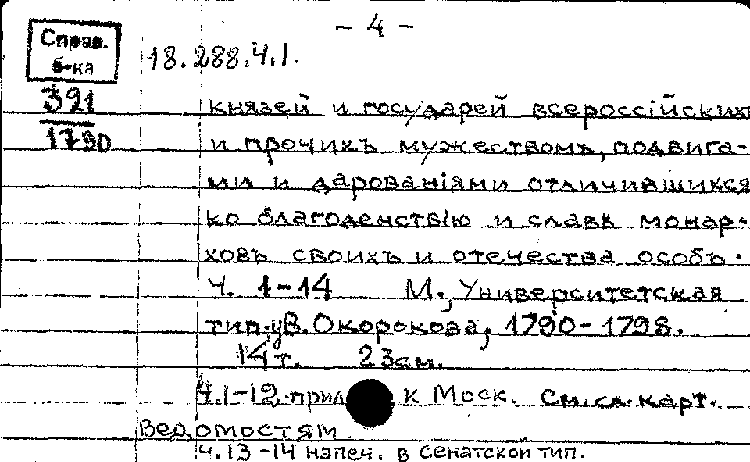 – 4 –
Справ.
б-ка
18.288.Ч.1.
391
1790
князей и государей всероссiйскихъ
и прочихъ мужествомъ, подвига-
ми и дарованiями отличившихся
ко благоденствiю и славѣ монар-
ховъ своихъ и отечества особъ.
Ч. 1-14 М., Университетская
тип. у В. Окорокова, 1790-1798.
14 т. 23 см.
Ч.1-12 прил к Моск. См. сл. карт.
Ведомостям
Ч.13-14 напеч. в Сенатской тип.